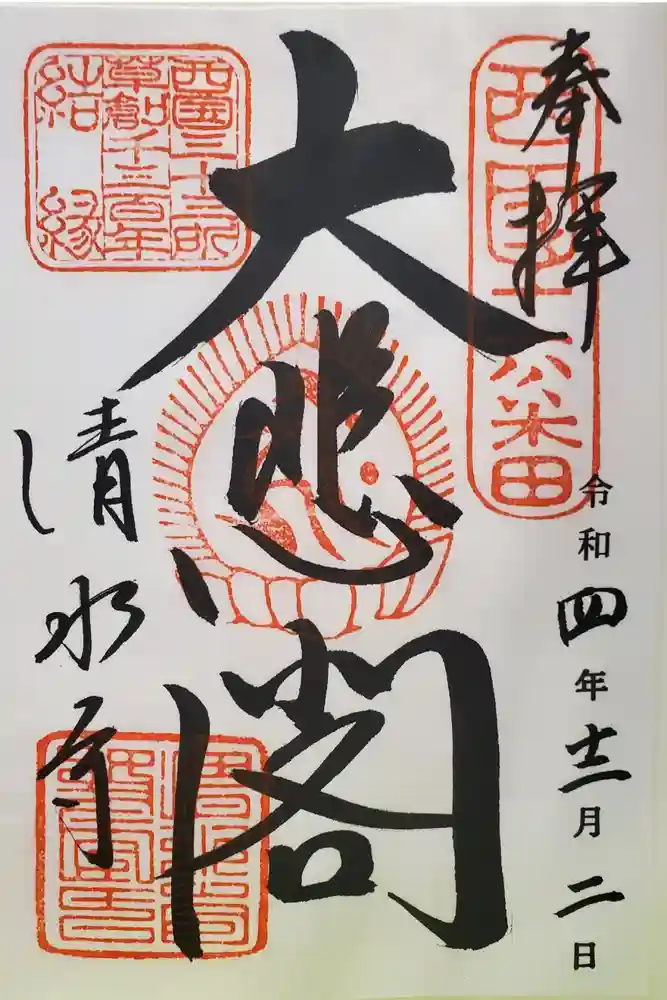 奉拝
令和四年十二月二日
大悲閣
清水寺
西国三十三所
草創千三百年
結縁